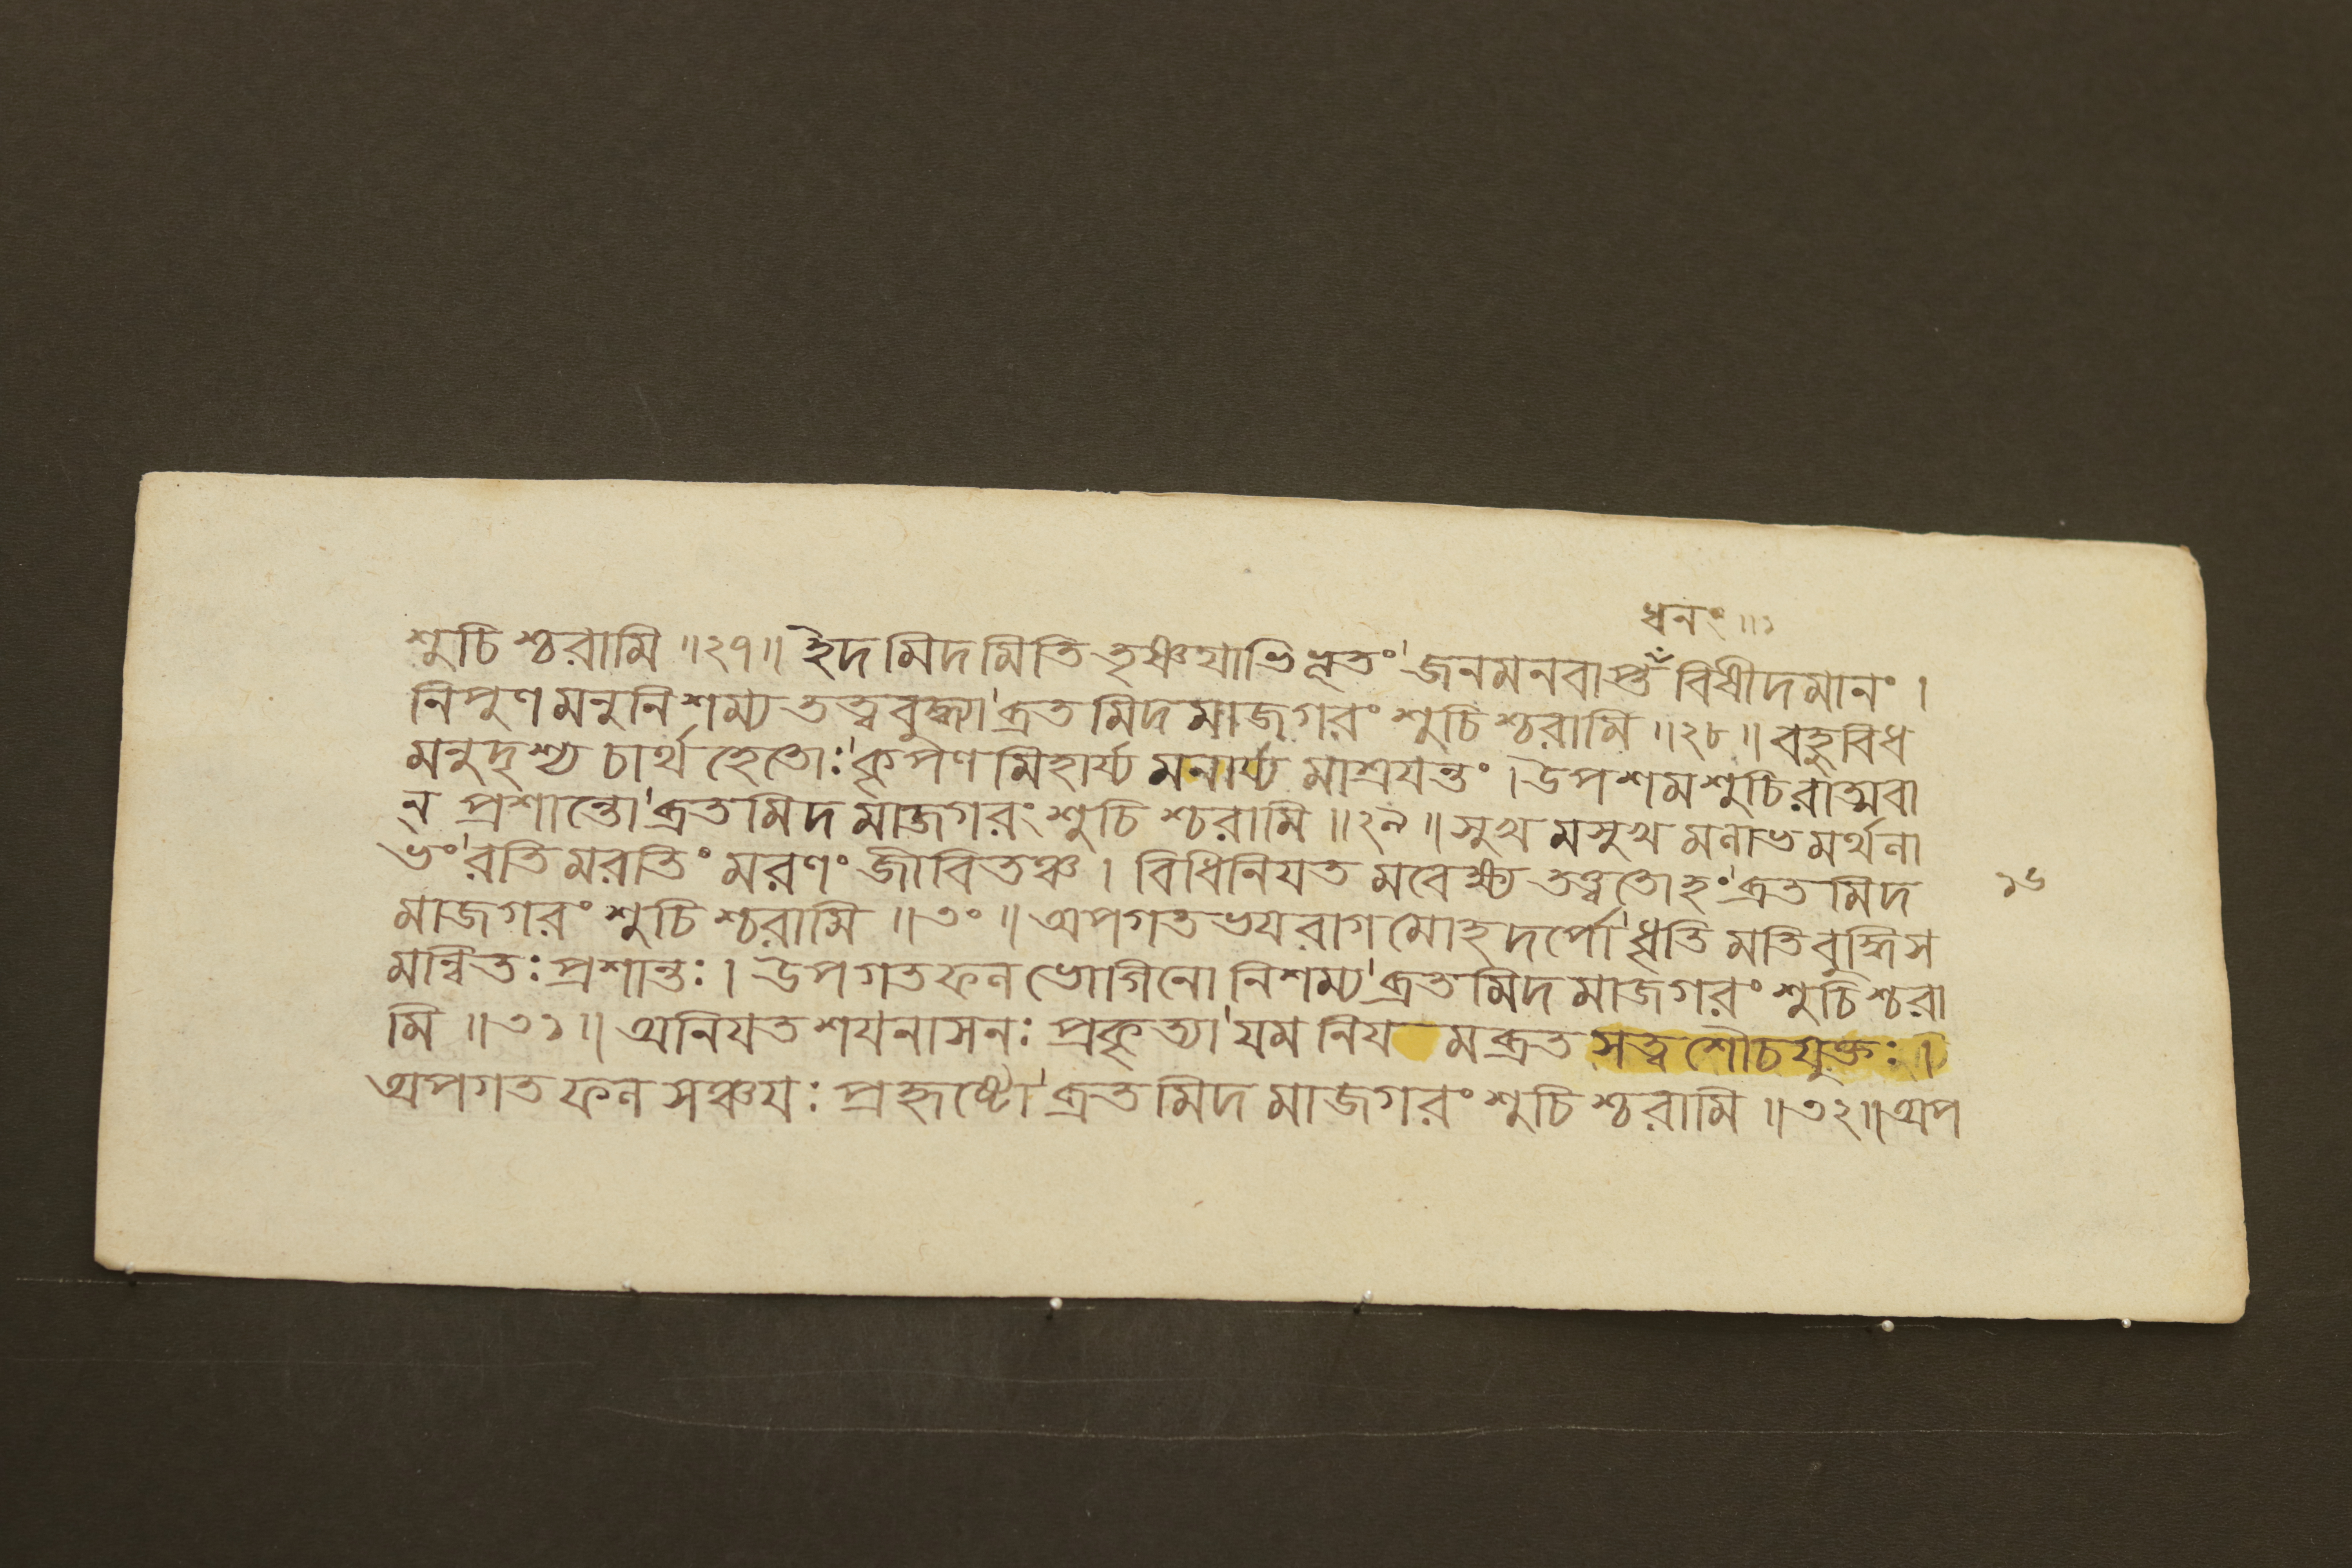 ধনং ॥১
শুচিশ্চরামি ॥২৭॥ ইদমিদমিতি তৃষ্ণযাভিভূতং' জনমনবাপ্ত বিষীদমানং ।
নিপুণমনুনিশম্য তত্ত্ববুদ্ধ্যা' ব্রতমিদমাজগরং শুচিশ্চরামি ॥২৮॥ বহুবিধ
মনুদৃশ্য চার্থহেতোঃ' কৃপণমিহার্য্যমনার্য্যমাশ্রযন্তং । উপশমশুচিরাত্মবা
ন্ প্রশান্তো' ব্রতমিদমাজগরং শুচিশ্চরামি ॥২৯॥ সুখমসুখমনাভমর্থনা
ভং' রতিমরতিং মরণং জীবিতঞ্চ । বিধিনিযতমবেক্ষ্য তত্ত্বতোহং' ব্রতমিদ
১৬
মাজগরং শুচিশ্চরামি ॥৩০॥ অপগতভযরাগমোহদর্পো' ধৃতিমতিবুদ্ধিস
মান্বিতঃ প্রশান্তঃ । উপগতফনভোগিনো নিশম্য' ব্রতমিদমাজগরং শুচিশ্চরা
মি ॥৩১॥ অনিযতশযনাসনঃ প্রকৃত্যা' যমনিয মব্রতসত্ত্বশৌচযুক্তঃ ।
অপগতফনসঞ্চযঃ প্রহৃষ্টো' ব্রতমিদমাজগরং শুচিশ্চরামি ॥৩২॥ অপ